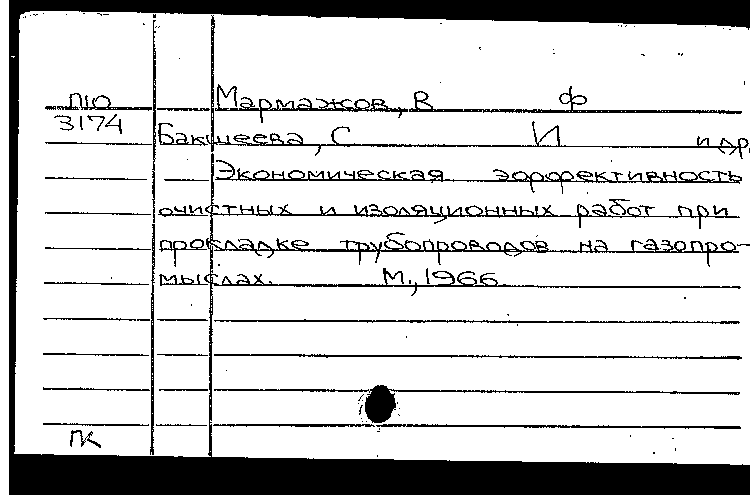 П10 Мармажов, В Ф
3174
Бакшеева, С И и др.
Экономическая эффективность
очистных и изоляционных работ при
прокладке трубопроводов на газопро-
мыслах. М., 1966.
ПК